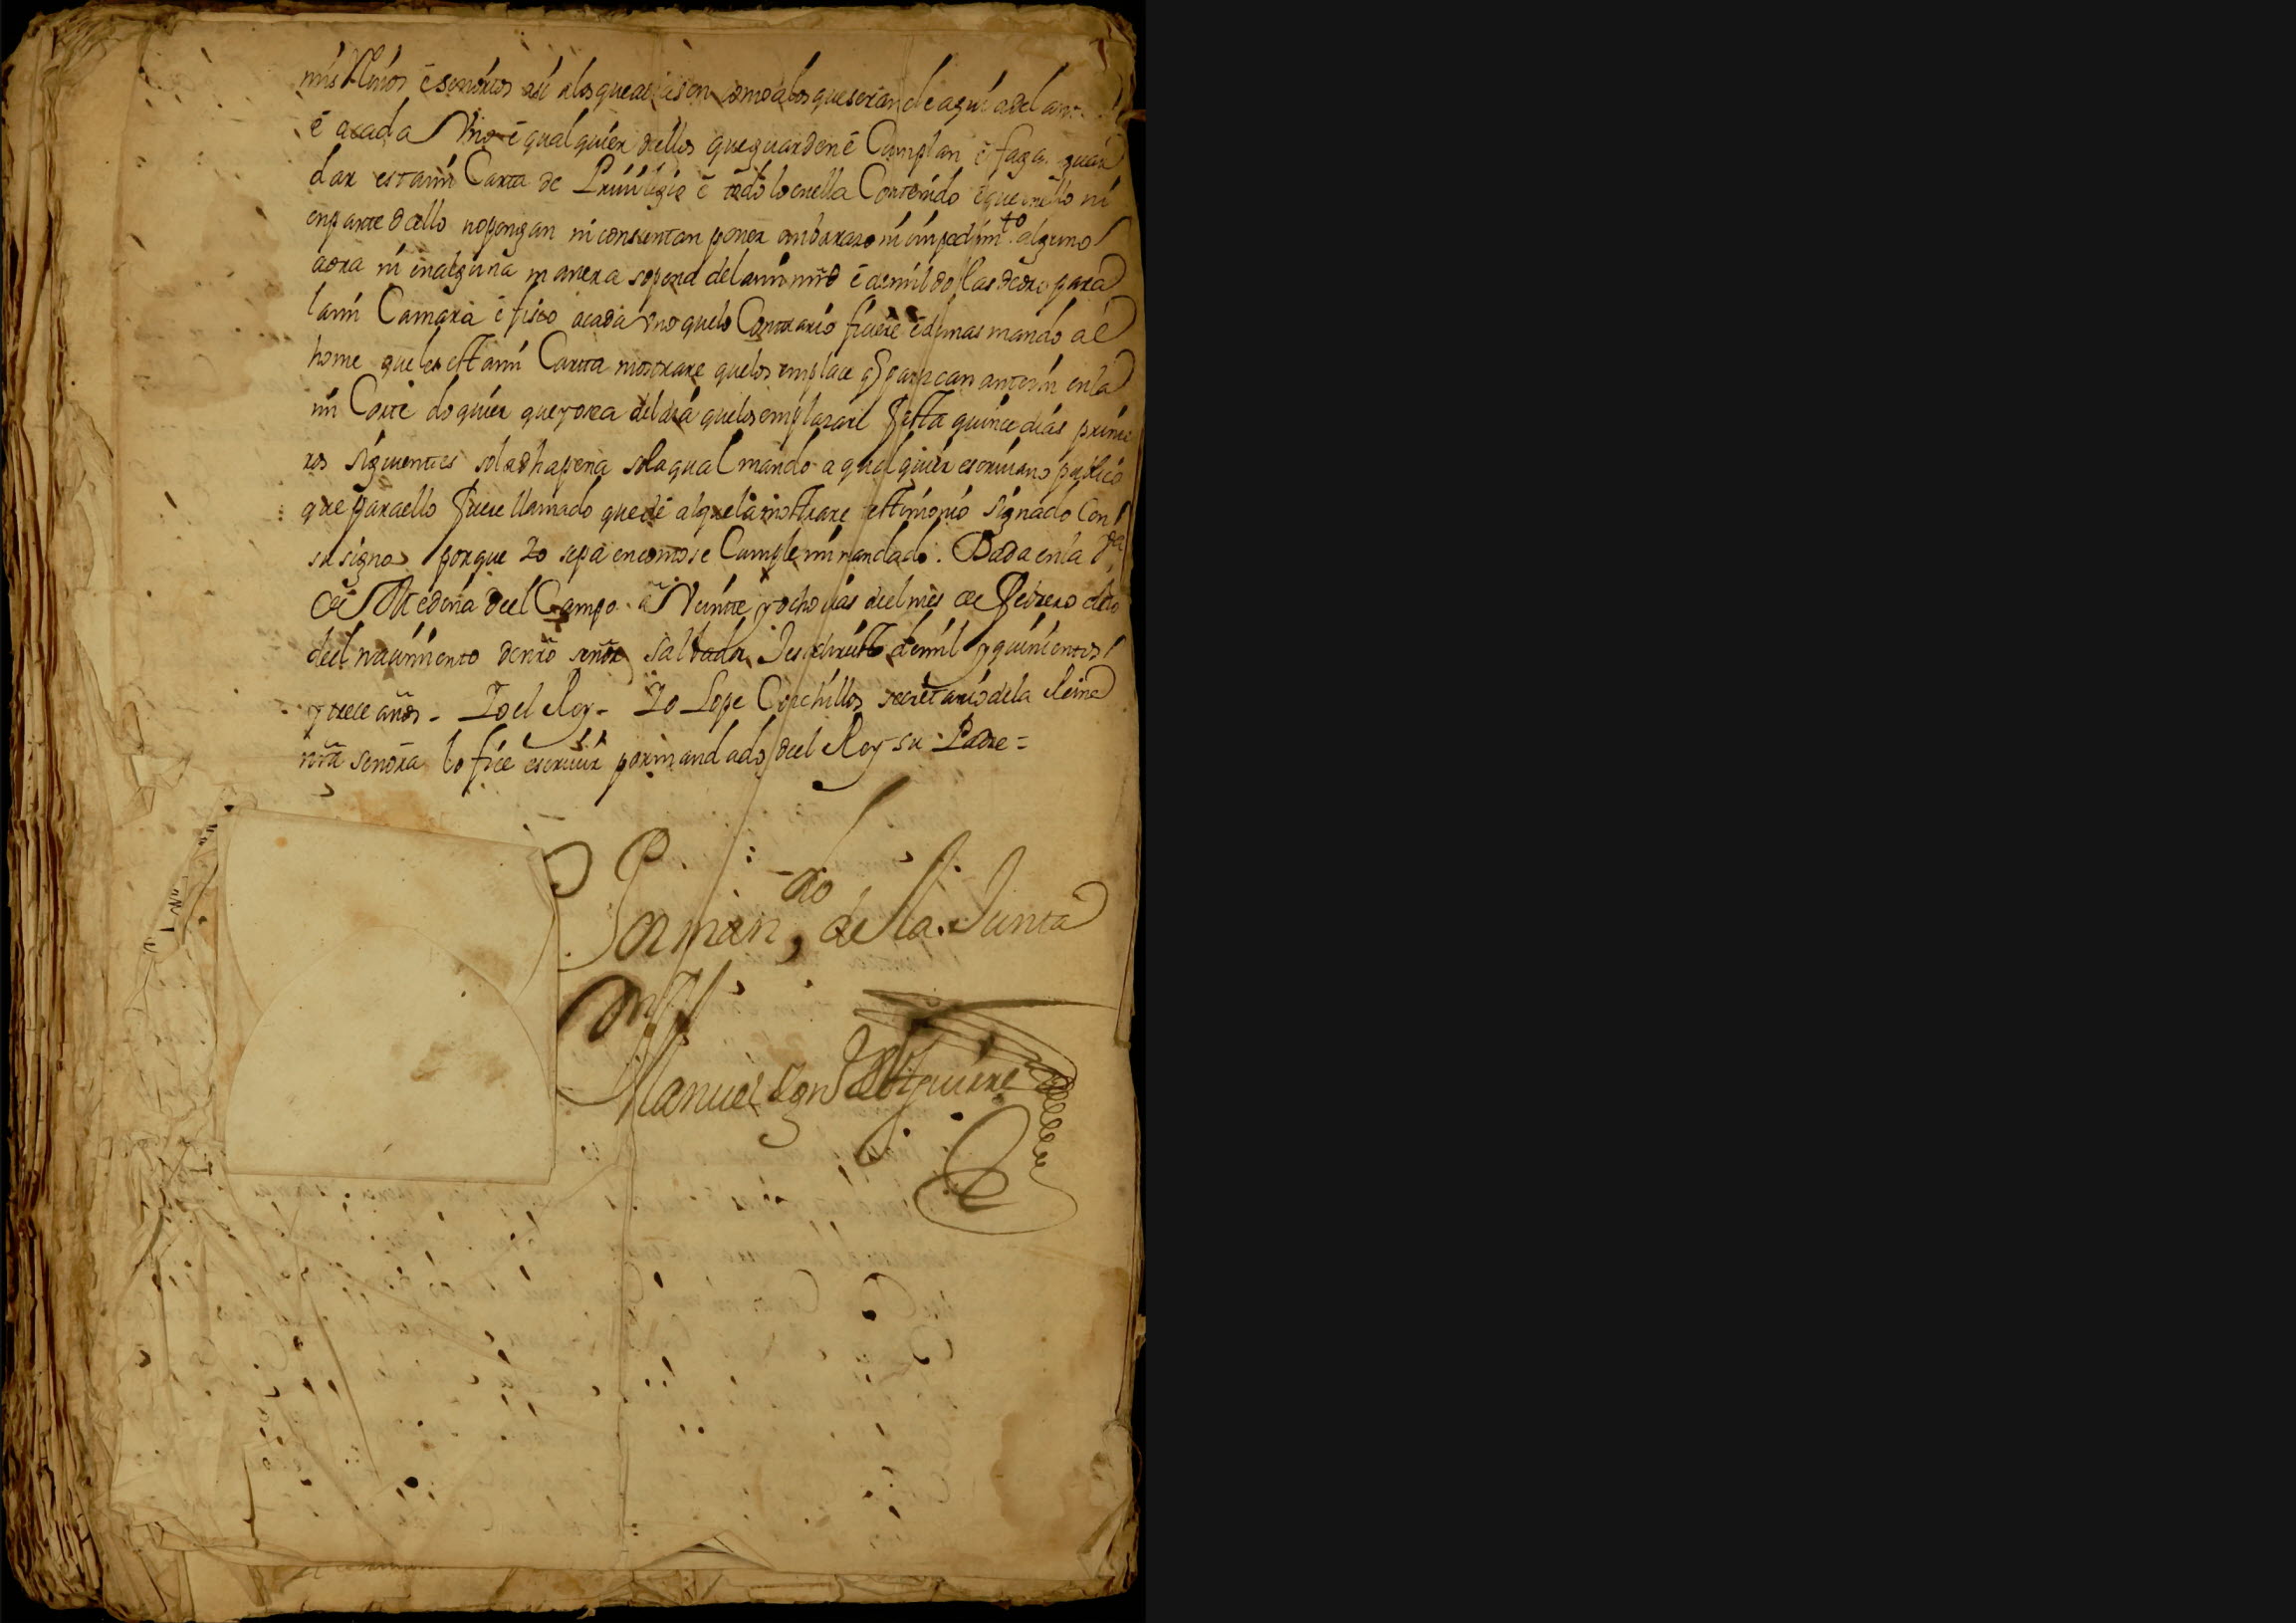 mis Reinos é señorios asi alos que aora son como alos que seran de aqui adelante
é acada Vno é qualquier dellos que guarden é Cumplan é faga guar
dar estami Carta de Priuilegio é todo lo enella Contenido é que enello ni
enparte dello nopongan ni consientan poner embarazo ni impedimto alguno
aora ni enalguna manera sopena delami mrd é demil doblas deoro para
lami Camara é fisco acada vno quelo Contrario ficiere é demas mando al
home queles estami Carta mostrare quelos emplace q parezcan antemi enla
mi Corte do quier que yosea deldia quelos emplazare fasta quince dias prime
ros siguientes soladha pena solaqual mando a qualquier escriuano publico
que paraello fuere llamado quedé alquela mostrare testimonio signado Con
su signo porque Yo sepa encomose Cumple mi mandado. Dada enla Va
de Medina deel Campo a Veinte y ocho dias deel mes de Febrero
deel nacimiento denro señor Salbador Jesuchristo demil y quinientos
y trece años - Yo el Rey - Yo Lope Conchillos secretario dela Reina
nrã señora lo fice escriuir pormandado deel Rey su Padre =
Por mando de la Junta
Manuel